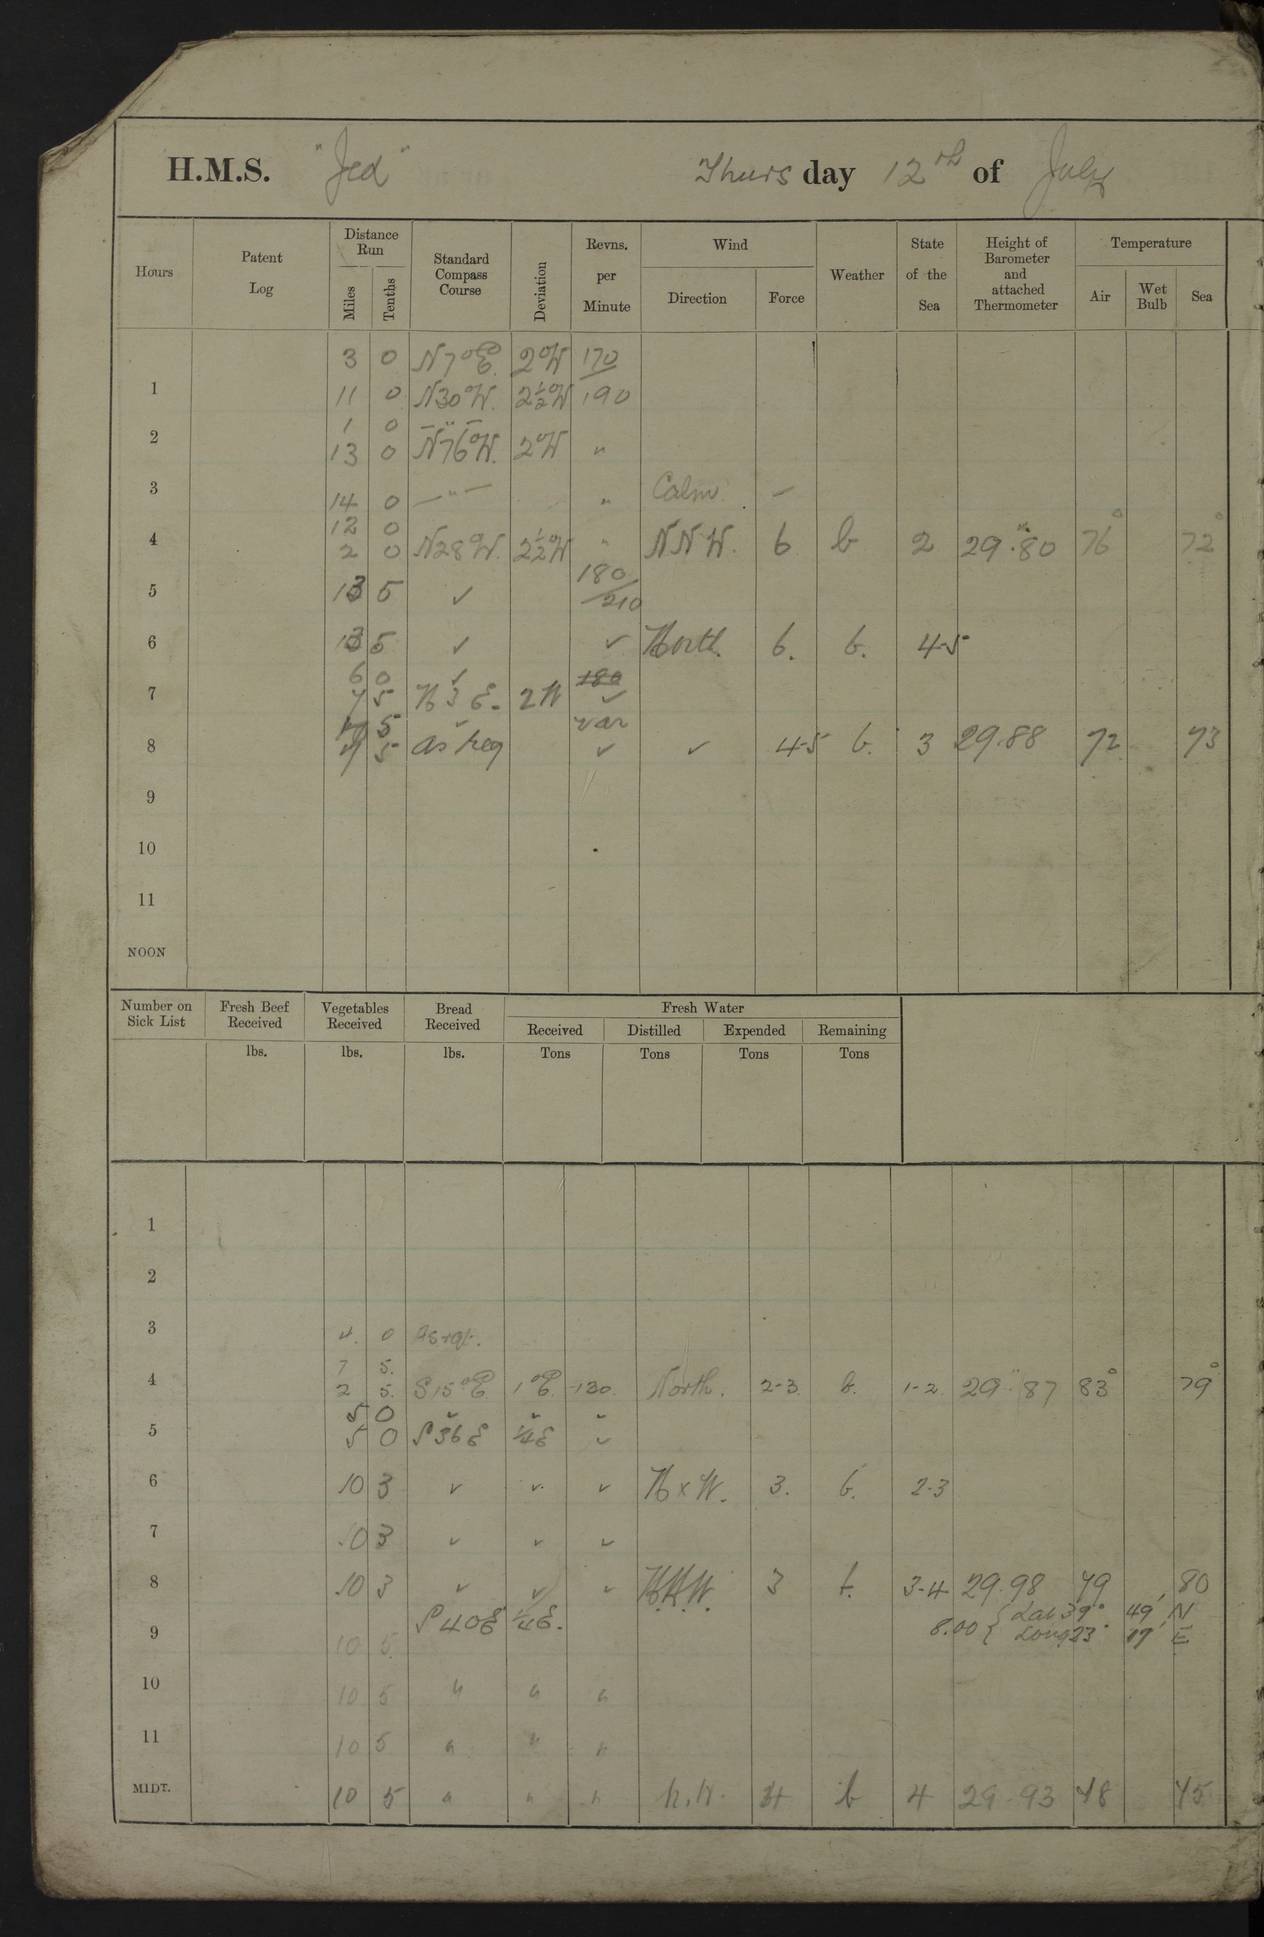 H.M.S. "Jed" Thursday 12th of July
Hours Patent Log Distance Run Miles Tenths Standard Compass Course Deviation Revns. per Minute Wind Direction Force Weather State of the Sea Height of Barometer and attached Thermometer Temperature Air Wet Bulb Sea
3 0 N7°E. 2°W 170
1 11 0 N30°W. 2½°W 190
1 0 — " —
2 13 0 N76°W. 2°W "
3 14 0 — " — " Calm —
12 0
4 2 0 N28°W. 2½°W " NNW. 6 b 2 29.80 76° 72°
5 13 5 ✓ 180/210
6 13 5 ✓ ✓ North. 6. b. 4-5
6 0 ✓ 180
7 7 5 N 3 E. 2 W ✓
5 ✓ var
8 7 5 as req ✓ ✓ 4-5 b. 3 29.88 72 73
9
10
11
NOON
Number on Sick List Fresh Beef Received Vegetables Received Bread Received Fresh Water
Received Distilled Expended Remaining
lbs. lbs. lbs. Tons Tons Tons Tons
1
2
3 4. 0 as rqt.
7 5.
4 2 5. S15°E. 1°E. 130. North. 2-3 b. 1-2 29.87 83° 79°
5 0 ✓ ✓ ✓
5 5 0 S36E ¼E ✓
6 10 3 ✓ ✓ ✓ N x W. 3. b. 2-3
7 10 3 ✓ ✓ ✓
8 10 3 ✓ ✓ ✓ N.N.W. 3 b. 3-4 29.98 79 80
S40E ¼E. 8.00 { Lat 39° 49' N
9 10 5 Long 23° 17' E
10 10 5 " " "
11 10 5 " " "
MIDT. 10 5 " " " N.W. 4 b 4 29.93 78 75